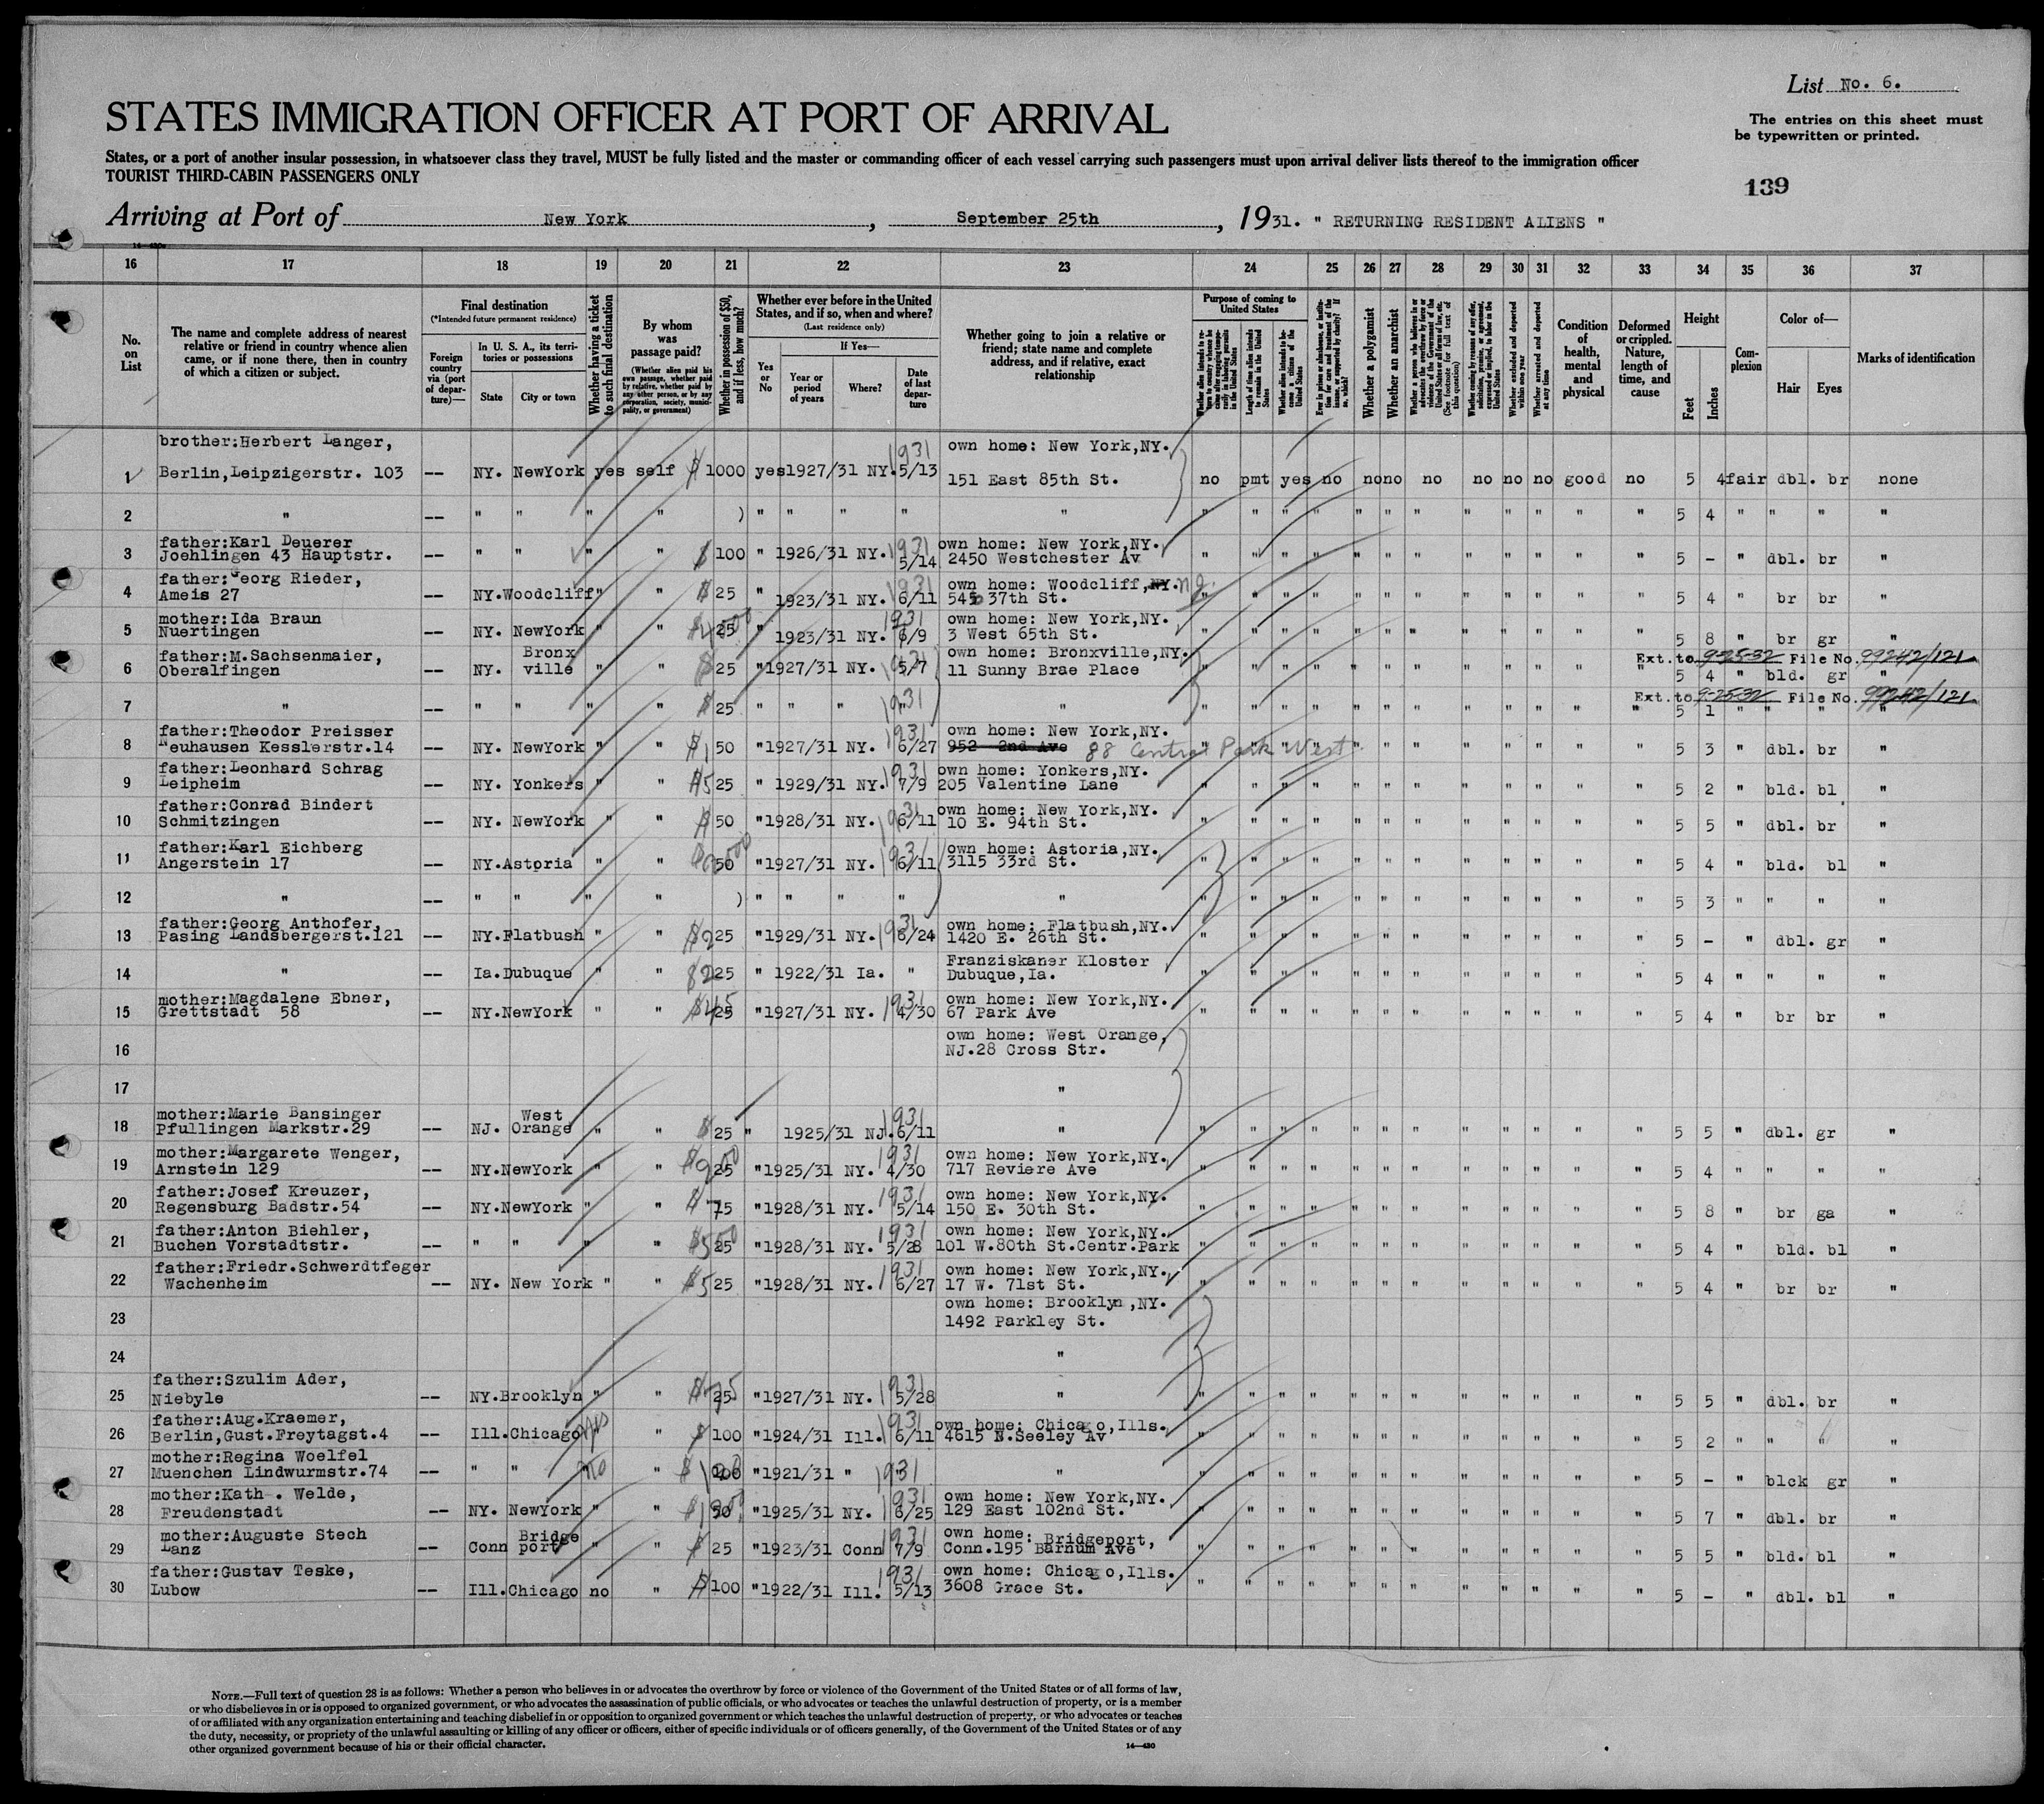 List No. 6.
STATES IMMIGRATION OFFICER AT PORT OF ARRIVAL
The entries on this sheet must
be typewritten or printed.
States, or a port of another insular possession, in whatsoever class they travel, MUST be fully listed and the master or commanding officer of each vessel carrying such passengers must upon arrival deliver lists thereof to the immigration officer
TOURIST THIRD-CABIN PASSENGERS ONLY
139
Arriving at Port of New York, September 25th, 1931. " RETURNING RESIDENT ALIENS "
16 17 18 19 20 21 22 23 24 25 26 27 28 29 30 31 32 33 34 35 36 37
No. on List
The name and complete address of nearest relative or friend in country whence alien came, or if none there, then in country of which a citizen or subject.
Final destination
(*Intended future permanent residence)
Foreign country via (port of departure)—
In U. S. A., its territories or possessions
State
City or town
Whether having a ticket to such final destination
By whom was passage paid?
(Whether alien paid his own passage, whether paid by relative, whether paid by any other person, or by any corporation, society, municipality, or government)
Whether in possession of $50, and if less, how much?
Whether ever before in the United States, and if so, when and where?
(Last residence only)
Yes or No
If Yes—
Year or period of years
Where?
Date of last departure
Whether going to join a relative or friend; state name and complete address, and if relative, exact relationship
Purpose of coming to United States
Length of time alien intends to remain in the United States
Whether alien intends to become a citizen of the United States
Whether a polygamist
Whether an anarchist
Whether excluded and deported within one year
Whether arrested and deported at any time
Condition of health, mental and physical
Deformed or crippled. Nature, length of time, and cause
Height
Feet
Inches
Complexion
Color of—
Hair
Eyes
Marks of identification
brother:Herbert Langer, 1931 own home: New York,NY.
1 Berlin,Leipzigerstr. 103 -- NY. NewYork yes self $ 1000 yes 1927/31 NY. 5/13 151 East 85th St. no pmt yes no no no no no no no good no 5 4 fair dbl. br none
2 " -- " " " " ) " " " " " " " " " " " " " " " " " 5 4 " " " "
father:Karl Deuerer 1931 own home: New York,NY.
3 Joehlingen 43 Hauptstr. -- " " " " $ 100 " 1926/31 NY. 5/14 2450 Westchester Av " " " " " " " " " " " " 5 - " dbl. br "
father:Georg Rieder, 1931 own home: Woodcliff, NY. NJ.
4 Ameis 27 -- NY. Woodcliff " " $ 25 " 1923/31 NY. 6/11 545 37th St. " " " " " " " " " " " " 5 4 " br br "
mother:Ida Braun 1931 own home: New York,NY.
5 Nuertingen -- NY. NewYork " " $ 25 " 1923/31 NY. 6/9 3 West 65th St. " " " " " " " " " " " " 5 8 " br gr "
father:M.Sachsenmaier, Bronx 1931 own home: Bronxville,NY. Ext. to 9-25-32 File No. 99242/121
6 Oberalfingen -- NY. ville " " $ 25 " 1927/31 NY. 5/7 11 Sunny Brae Place " " " " " " " " " " " " 5 4 " bld. gr "
Ext. to 9-25-32 File No. 99242/121
7 " -- " " " " $ 25 " " " 1931 " " " " " " " " " " " " " " 5 1 " " " "
father:Theodor Preisser 1931 own home: New York,NY.
8 Neuhausen Kesslerstr.14 -- NY. NewYork " " $ 50 " 1927/31 NY. 6/27 952 2nd Ave 88 Central Park West " " " " " " " " 5 3 " dbl. br "
father:Leonhard Schrag 1931 own home: Yonkers,NY.
9 Leipheim -- NY. Yonkers " " $5 25 " 1929/31 NY. 7/9 205 Valentine Lane " " " " " " " " " " " " 5 2 " bld. bl "
father:Conrad Bindert 1931 own home: New York,NY.
10 Schmitzingen -- NY. NewYork " " $ 50 " 1928/31 NY. 6/11 10 E. 94th St. " " " " " " " " " " " " 5 5 " dbl. br "
father:Karl Eichberg 1931 own home: Astoria,NY.
11 Angerstein 17 -- NY. Astoria " " 50 " 1927/31 NY. 6/11 3115 33rd St. " " " " " " " " " " " " 5 4 " bld. bl "
12 " -- " " " " ) " " " " " " " " " " " " " " " " " 5 3 " " " "
father:Georg Anthofer, 1931 own home: Flatbush,NY.
13 Pasing Landsbergerst.121 -- NY. Flatbush " " 25 " 1929/31 NY. 6/24 1420 E. 26th St. " " " " " " " " " " " " 5 - " dbl. gr "
Franziskaner Kloster
14 " -- Ia. Dubuque " " 25 " 1922/31 Ia. " Dubuque,Ia. " " " " " " " " " " " " 5 4 " " " "
mother:Magdalene Ebner, 1931 own home: New York,NY.
15 Grettstadt 58 -- NY. NewYork " " $45 25 " 1927/31 NY. 4/30 67 Park Ave " " " " " " " " " " " " 5 4 " br br "
own home: West Orange,
16 NJ.28 Cross Str.
17 "
mother:Marie Bansinger West 1931
18 Pfullingen Markstr.29 -- NJ. Orange " " $ 25 " 1925/31 NJ. 6/11 " " " " " " " " " " " " " 5 5 " dbl. gr "
mother:Margarete Wenger, 1931 own home: New York,NY.
19 Arnstein 129 -- NY. NewYork " " 25 " 1925/31 NY. 4/30 717 Reviere Ave " " " " " " " " " " " " 5 4 " " " "
father:Josef Kreuzer, 1931 own home: New York,NY.
20 Regensburg Badstr.54 -- NY. NewYork " " $ 75 " 1928/31 NY. 5/14 150 E. 30th St. " " " " " " " " " " " " 5 8 " br ga "
father:Anton Biehler, 1931 own home: New York,NY.
21 Buchen Vorstadtstr. -- " " " " 25 " 1928/31 NY. 5/28 101 W.80th St.Centr.Park " " " " " " " " " " " " 5 4 " bld. bl "
father:Friedr.Schwerdtfeger 1931 own home: New York,NY.
22 Wachenheim -- NY. New York " " $5 25 " 1928/31 NY. 6/27 17 W. 71st St. " " " " " " " " " " " " 5 4 " br br "
own home: Brooklyn,NY.
23 1492 Parkley St.
24 "
father:Szulim Ader, 1931
25 Niebyle -- NY. Brooklyn " " 25 " 1927/31 NY. 5/28 " " " " " " " " " " " " " 5 5 " dbl. br "
father:Aug.Kraemer, 1931 own home: Chicago,Ills.
26 Berlin,Gust.Freytagst.4 -- Ill. Chicago yes " $ 100 " 1924/31 Ill. 6/11 4615 N.Seeley Av " " " " " " " " " " " " 5 2 " " " "
mother:Regina Woelfel
27 Muenchen Lindwurmstr.74 -- " " no " 100 " 1921/31 " 1931 " " " " " " " " " " " " " 5 - " blck gr "
mother:Kath . Welde, 1931 own home: New York,NY.
28 Freudenstadt -- NY. NewYork " " 50 " 1925/31 NY. 6/25 129 East 102nd St. " " " " " " " " " " " " 5 7 " dbl. br "
mother:Auguste Stech Bridge 1931 own home: Bridgeport,
29 Lanz -- Conn port " " $ 25 " 1923/31 Conn 7/9 Conn.195 Barnum Ave " " " " " " " " " " " " 5 5 " bld. bl "
father:Gustav Teske, 1931 own home: Chicago,Ills.
30 Lubow -- Ill. Chicago no " $ 100 " 1922/31 Ill. 5/13 3608 Grace St. " " " " " " " " " " " " 5 - " dbl. bl "
NOTE.—Full text of question 28 is as follows: Whether a person who believes in or advocates the overthrow by force or violence of the Government of the United States or of all forms of law,
or who disbelieves in or is opposed to organized government, or who advocates the assassination of public officials, or who advocates or teaches the unlawful destruction of property, or is a member
of or affiliated with any organization entertaining and teaching disbelief in or opposition to organized government or which teaches the unlawful destruction of property, or who advocates or teaches
the duty, necessity, or propriety of the unlawful assaulting or killing of any officer or officers, either of specific individuals or of officers generally, of the Government of the United States or of any
other organized government because of his or their official character.
14—430